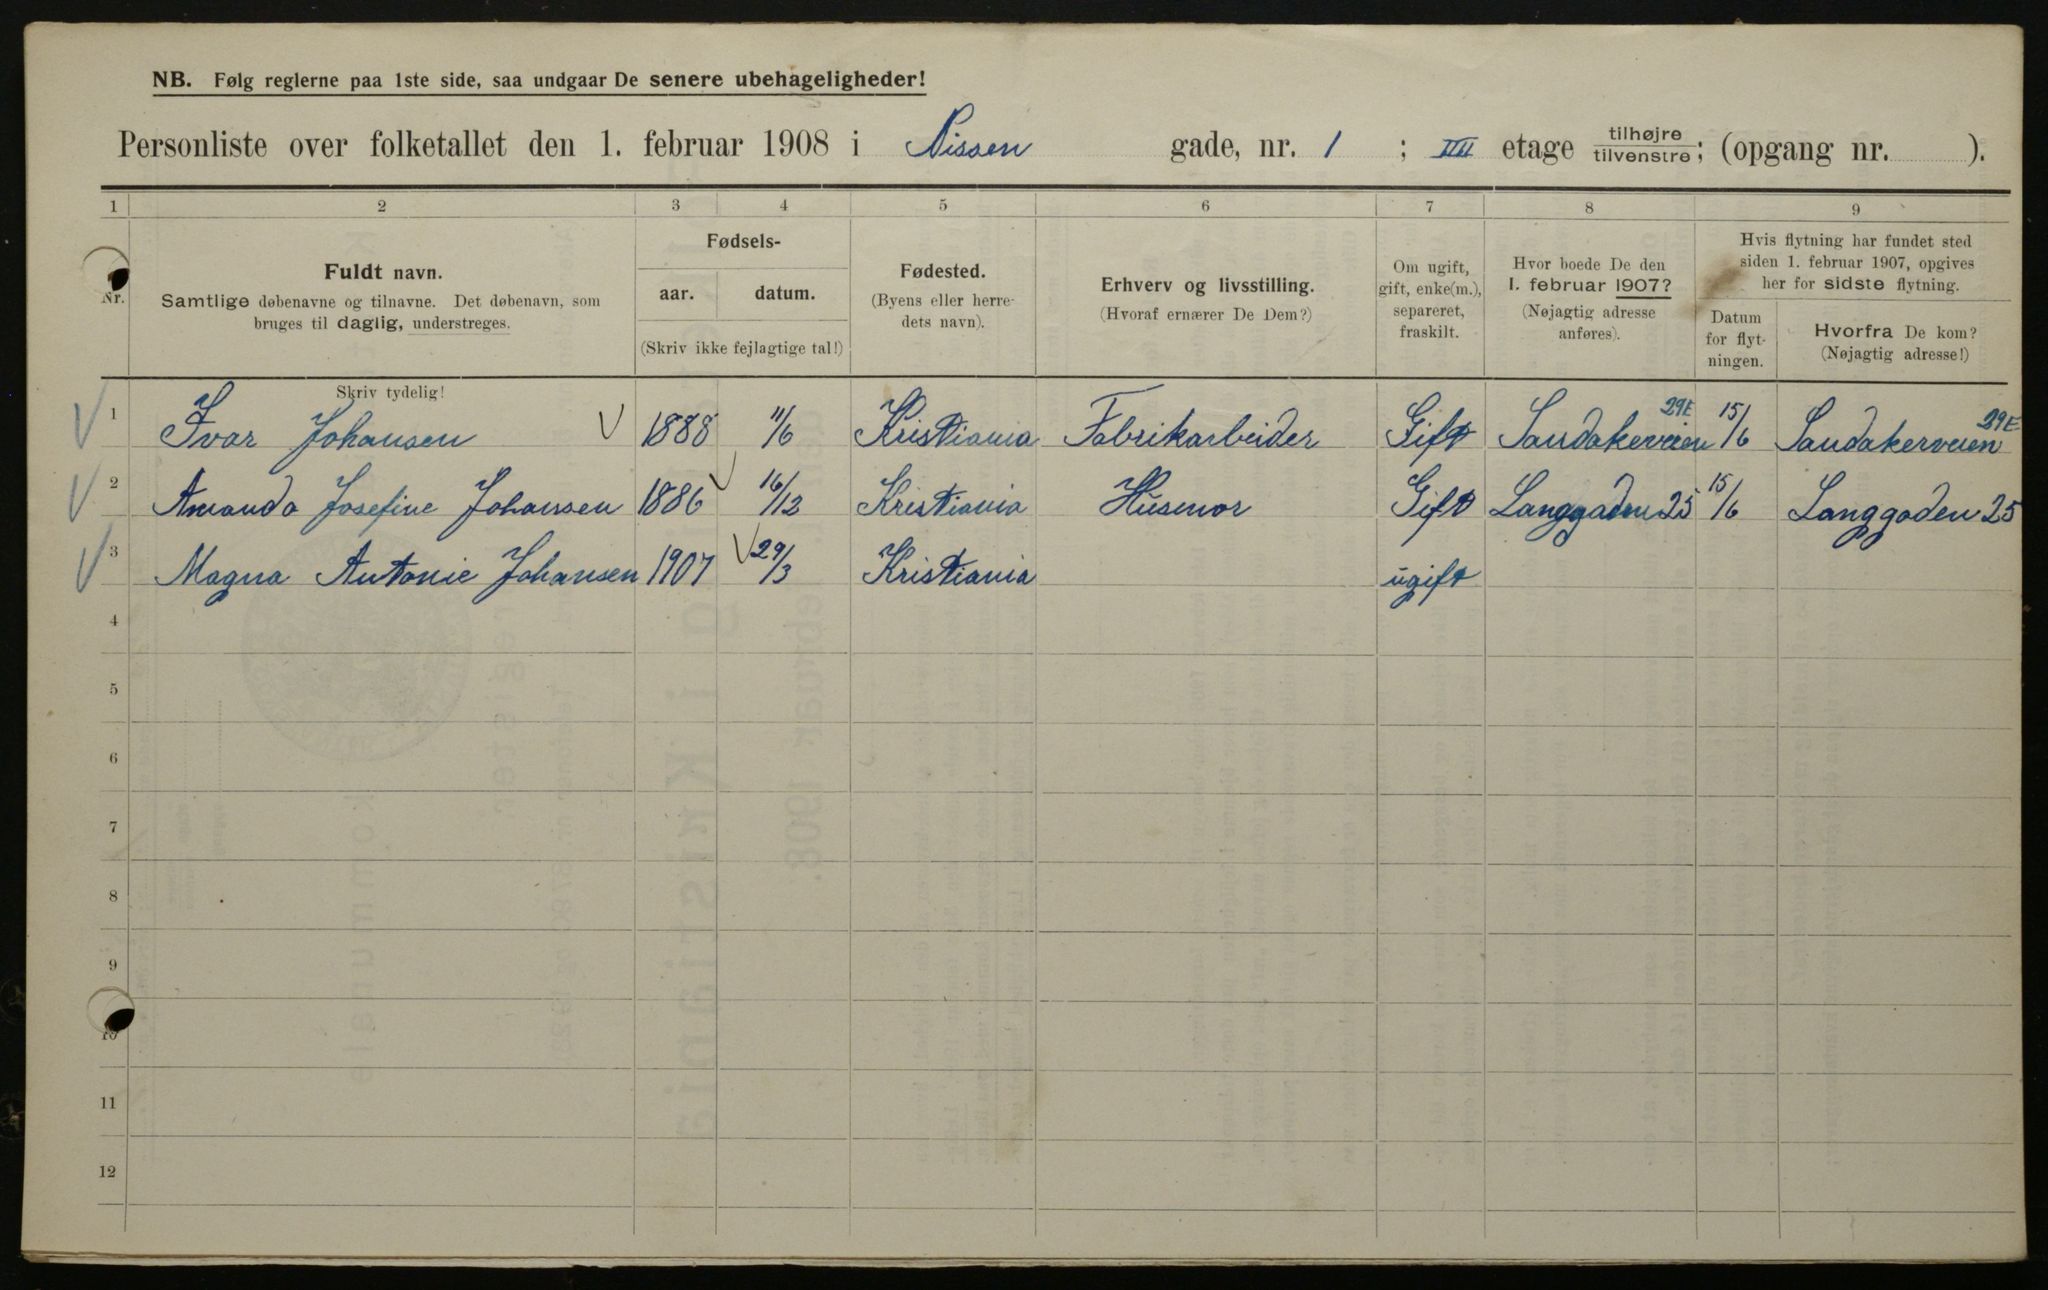 NB. Følg reglerne paa 1ste side, saa undgaar De senere ubehageligheder!
Personliste over folketallet den 1. februar 1908 i Nissen gade, nr. 1 ; IIII etage tilhøjre/tilvenstre; (opgang nr. ).
1 2 3 4 5 6 7 8 9
Nr.
Fuldt navn.
Samtlige døbenavne og tilnavne. Det døbenavn, som
bruges til daglig, understreges.
Fødsels-
aar. datum.
(Skriv ikke fejlagtige tal!)
Fødested.
(Byens eller herre-
dets navn).
Erhverv og livsstilling.
(Hvoraf ernærer De Dem?)
Om ugift,
gift, enke(m.),
separeret,
fraskilt.
Hvor boede De den
1. februar 1907?
(Nøjagtig adresse
anføres).
Hvis flytning har fundet sted
siden 1. februar 1907, opgives
her for sidste flytning.
Datum
for flyt-
ningen.
Hvorfra De kom?
(Nøjagtig adresse!)
Skriv tydelig!
1 Ivar Johansen 1888 11/6 Kristiania Fabrikarbeider Gift Sandakerveien 29E 15/6 Sandakerveien 29E
2 Amanda Josefine Johansen 1886 16/12 Kristiania Husmor Gift Langgaden 25 15/6 Langgaden 25
3 Magna Antonie Johansen 1907 29/3 Kristiania ugift
4
5
6
7
8
9
10
11
12